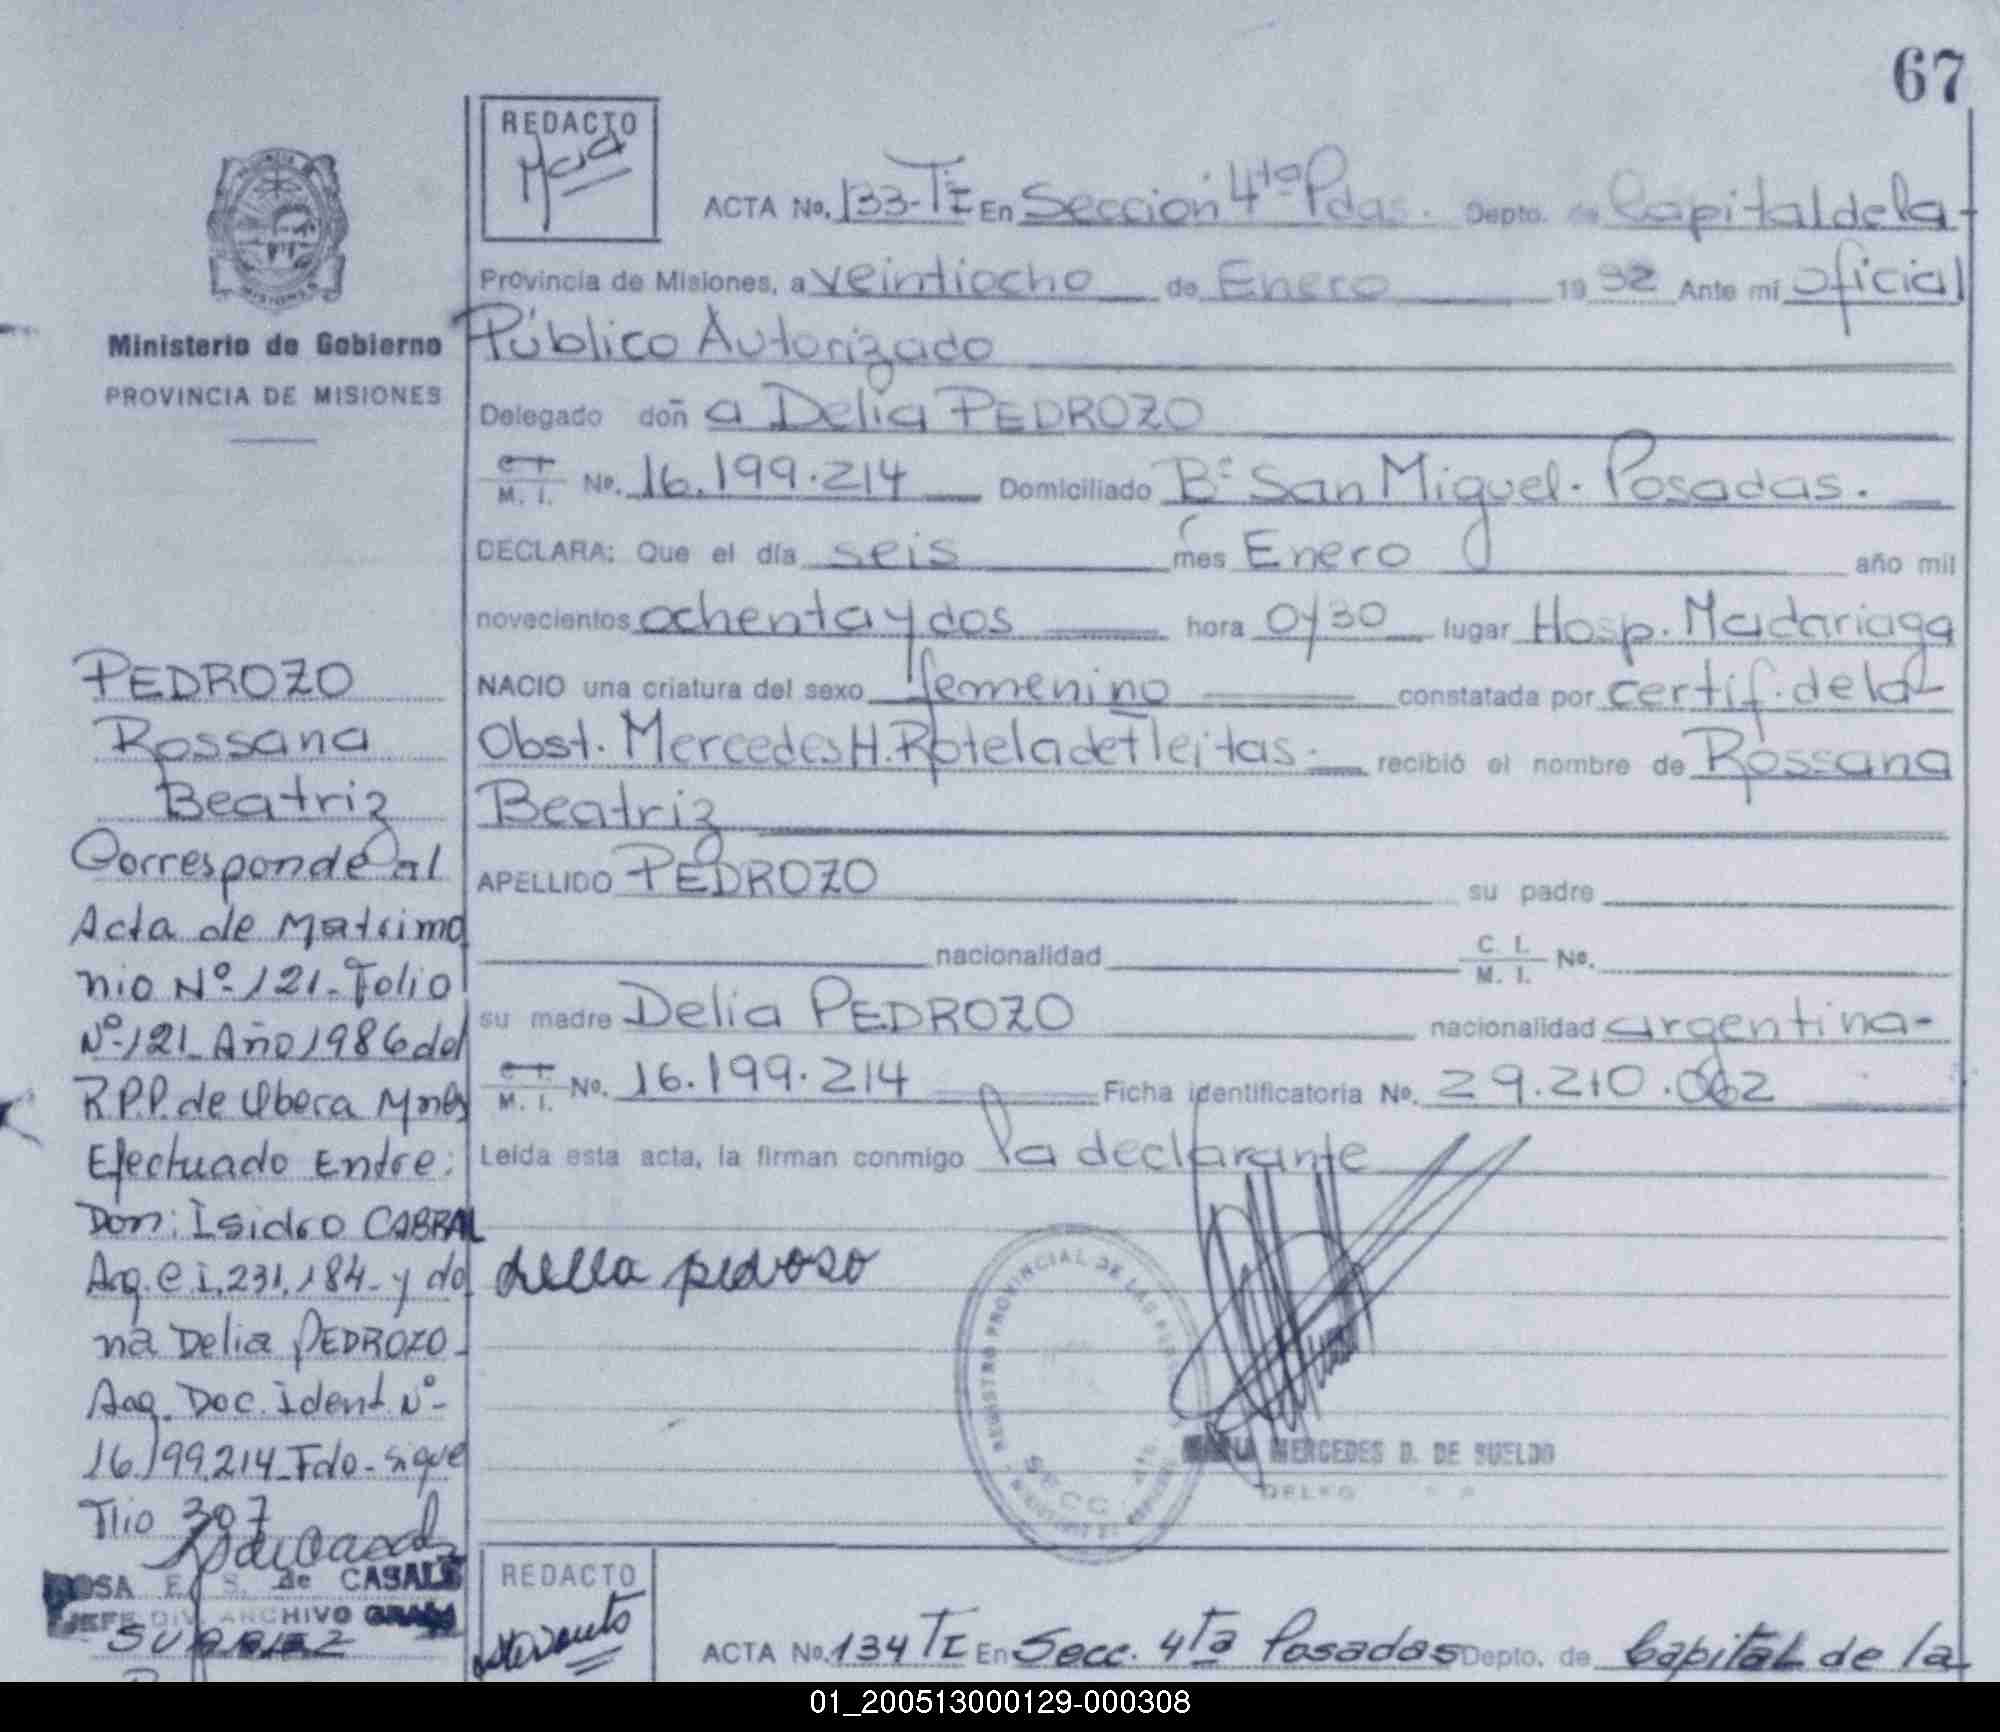 67
REDACTO
ACTA No. 133-TI En Sección 4ta Pdas. Depto. de Capital de la
Provincia de Misiones, a veintiocho de Enero 19 82 Ante mí oficial
Público Autorizado
Delegado doñ a Delia PEDROZO
C. I. / M. I. No. 16.199.214 Domiciliado Bº San Miguel. Posadas.
DECLARA: Que el día seis mes Enero año mil
novecientos ochenta y dos hora 0y30 lugar Hosp. Madariaga
NACIO una criatura del sexo femenino constatada por certif. de la
Obst. Mercedes H. Rotela de Fleitas. recibió el nombre de Rossana
Beatriz
APELLIDO PEDROZO su padre
nacionalidad C. I. / M. I. No.
su madre Delia PEDROZO nacionalidad argentina-
C. I. / M. I. No. 16.199.214 Ficha identificatoria No. 29.210.062
Leída esta acta, la firman conmigo la declarante
delia pedroso
REGISTRO PROVINCIAL DE LAS PERSONAS
SECC. 4ta.
MARIA MERCEDES D. DE SUELDO
MISIONES
Ministerio de Gobierno
PROVINCIA DE MISIONES
PEDROZO
Rossana
Beatriz
Corresponde al
Acta de Matrimo
nio Nº-121-Folio
Nº-121-Año 1986 del
R.P.P. de Obera Mnes
Efectuado Entre:
Don: Isidro CABRAL
Arg. C.I. 231.184-y do
ña Delia PEDROZO-
Arg. Doc. Ident. Nº-
16.199.214-Fdo-sigue
Tlio 307
ROSA E. S. de CASALE
JEFE DIV. ARCHIVO GRAL
SUAREZ
REDACTO
ACTA No. 134 TI En Secc. 4Ta Posadas Depto. de Capital de la
01_200513000129-000308